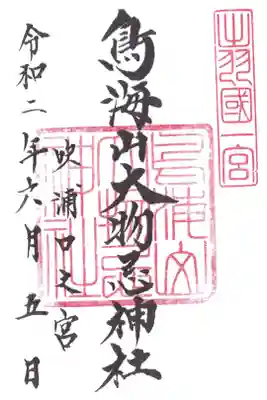 出羽國一宮
鳥海山大物忌神社
吹浦口之宮
令和二年六月五日